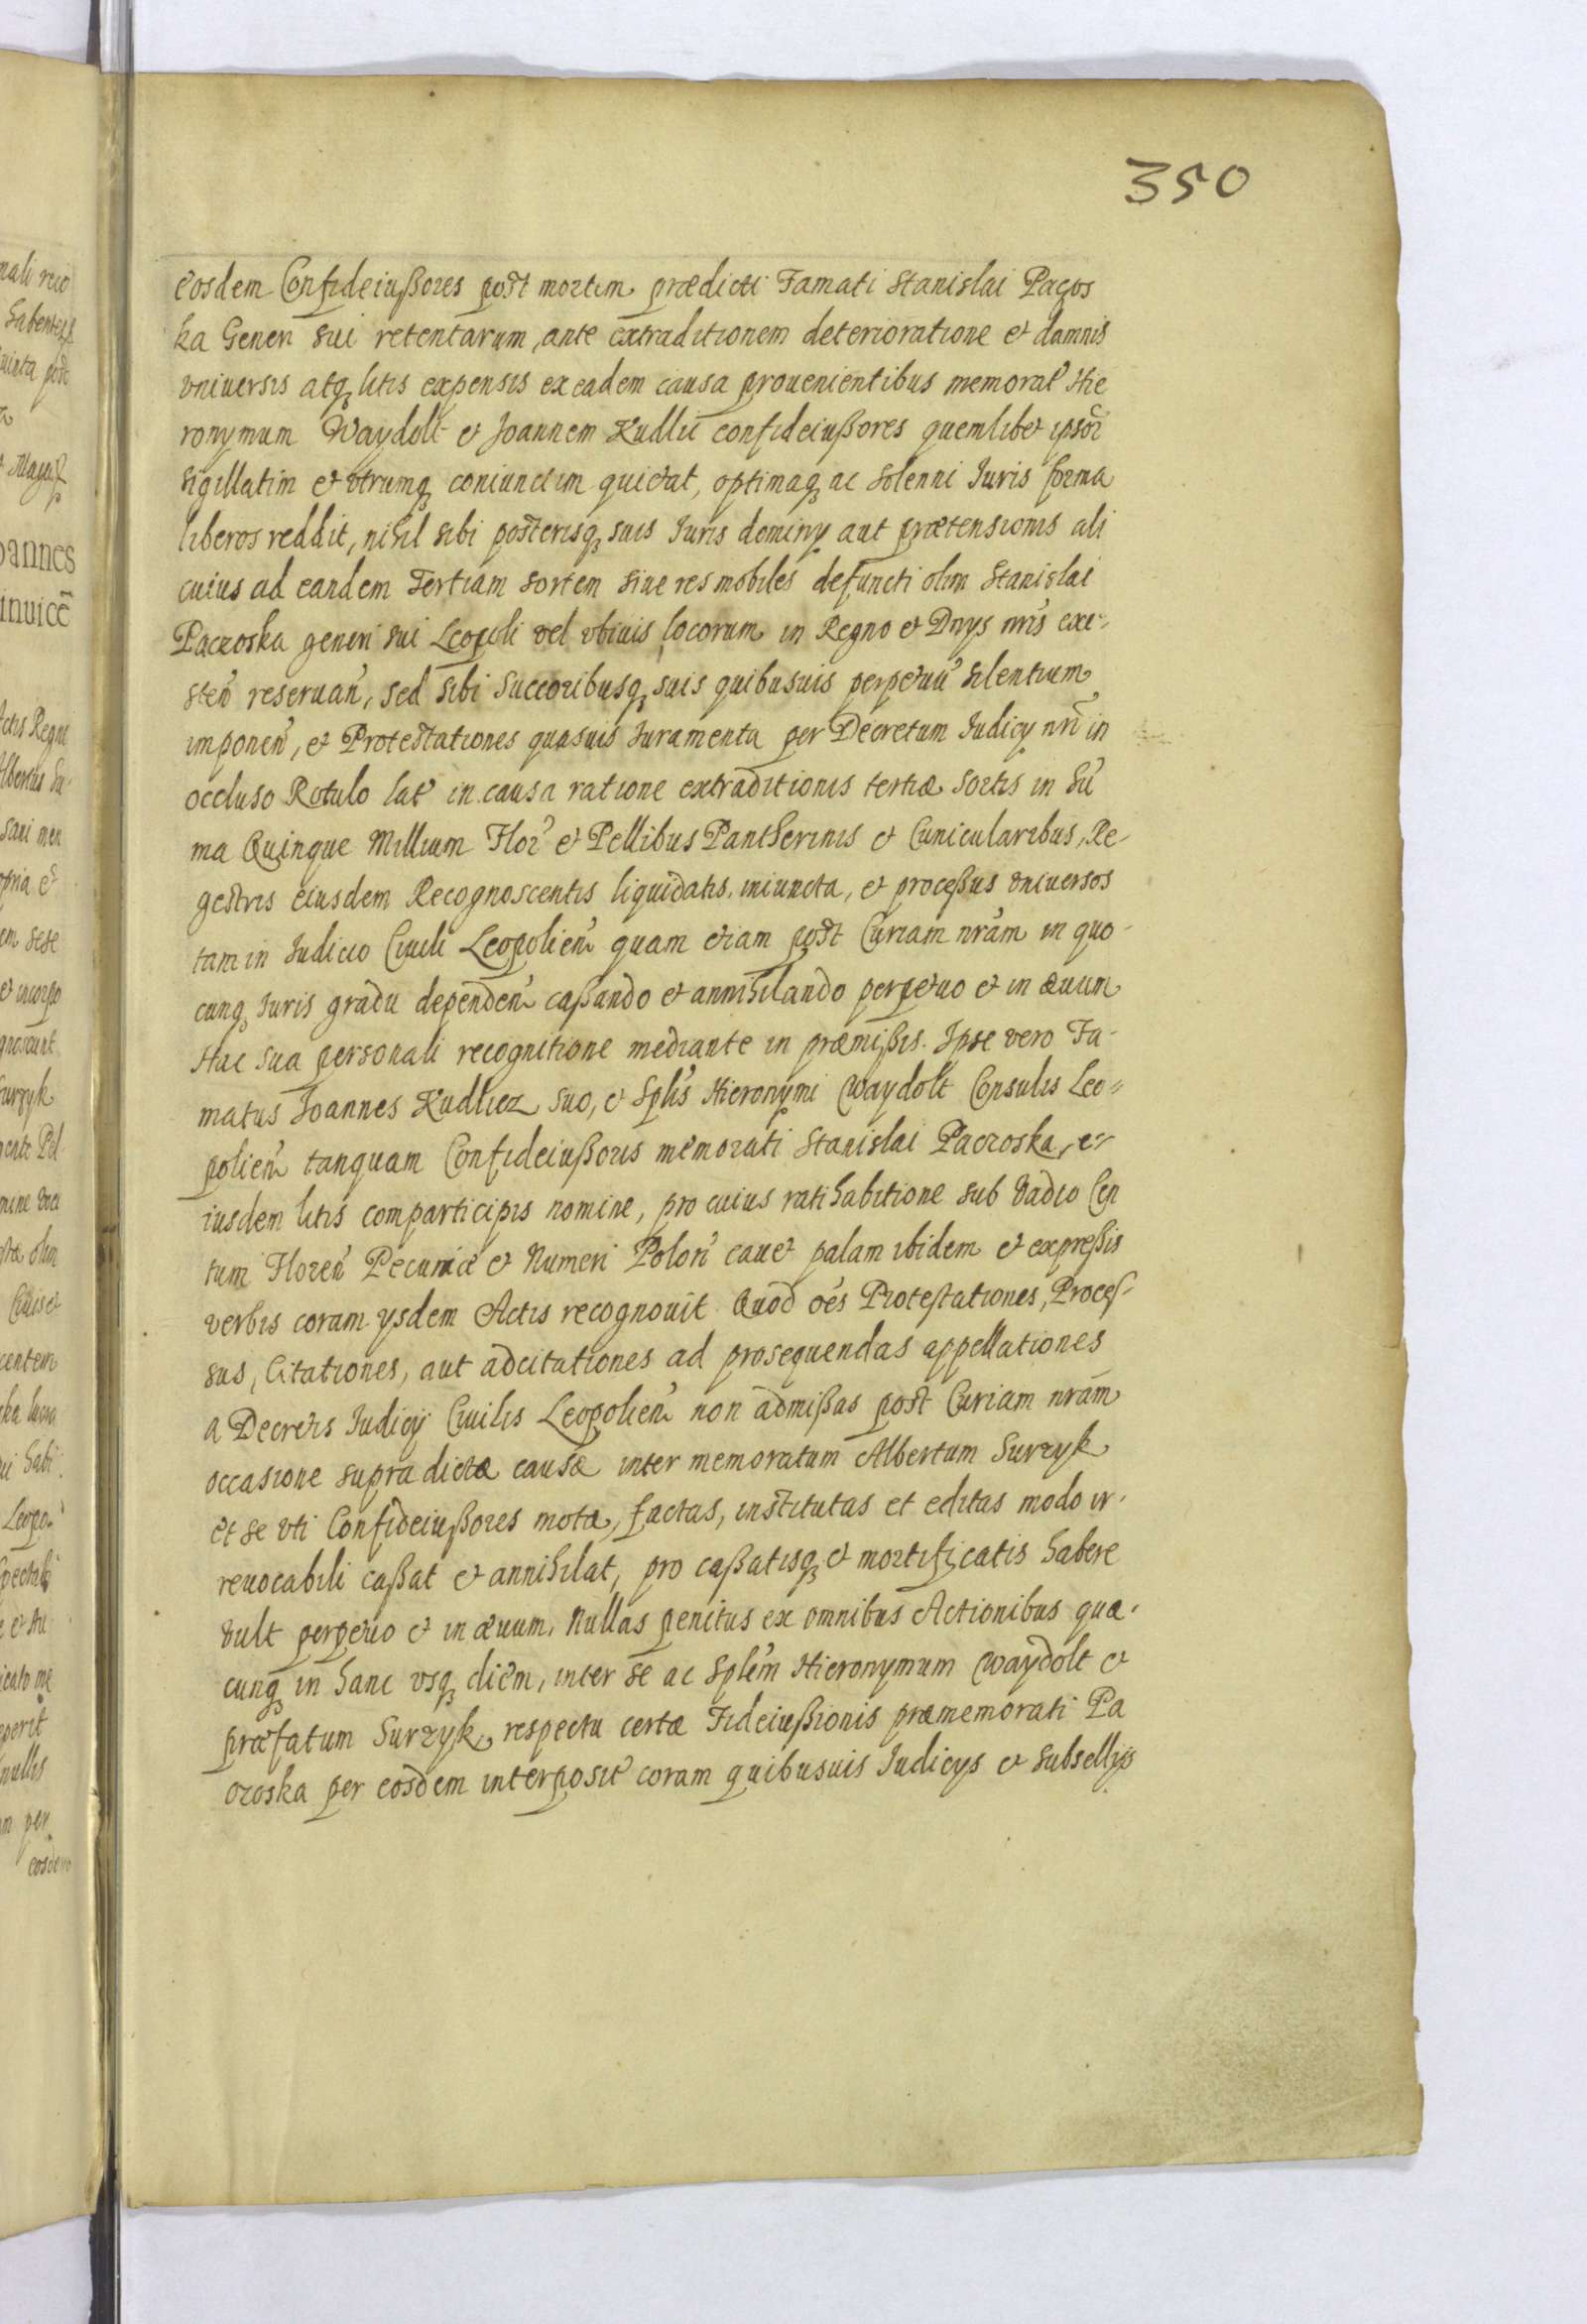 350
eosdem Confideiußores post mortem prædicti Famati Stanislai Paços
ka Generi sui retentarum, ante extraditionem deterioratione et damnis
vniuersis atq̢ litis expensis ex eadem causa prouenientibus memorat̉ Hie
ronymum Waydolt et Joannem Kudlii confideiußores quemlibet ipsor̃
sigillatim et vtrumq̢ coniunctim quietat, optimaq̢ ac solenni Iuris forma
liberos reddit, nihil sibi posterisq̢ suis Iuris dominy aut prætensionis ali
cuius ad eandem Tertiam sortem siue res mobiles defuncti olim Stanislai
Paczoska generi sui Leopoli vel vbiuis locorum in Regno et Dnys nris̃ exi-
sten̉ reseruan̉, sed sibi succoribusq̢ suis quibusuis perpetuủ silentium
imponen̉, et Protestationes quasuis Iuramenta per Decretum Iudicy nrĩ in
occluso Rotulo lat̉ in causa ratione extraditionis tertiæ sortis in sủ
ma Quinque Millium Flor̉ et Pellibus Pantherinis et Cunicularibus, Re-
gestris eiusdem Recognoscentis liquidatis, iniuncta, et proceßus vniuersos
tam in Iudicio Ciuili Leopolien̉ quam etiam post Curiam nrãm in quo-
cunq̢ Iuris gradu dependen̉ caßando et annihilando perpetuo et in æuum
Hac sua personali recognitione mediante in præmißis. Ipse vero Fa-
matus Joannes Kudlicz suo, et Splis̉ Hieronymi Waydolt Consulis Leo=
polien̉ tanquam Confideiußoris memorati Stanislai Paczoska, e-
iusdem litis comparticipis nomine, pro cuius ratihabitione sub vadio Cen
tum Floren̉ Pecuniæ et Numeri Polon̉ cauet palam ibidem et expreßis
verbis coram ysdem Actis recognouit. Quod oẽs Protestationes, Proces-
sus, Citationes, aut adcitationes ad prosequendas appellationes
a Decretis Iudicÿ Ciuilis Leopolien̉ non admißas post Curiam nrãm
occasione supra dictæ causæ inter memoratum Albertum Surzyk
et se vti Confideiußores motæ, factas, institutas et editas modo ir-
reuocabili caßat et annihilat, pro caßatisq̢ et mortificatis habere
vult perpetuo et in æuum. Nullas penitus ex omnibus Actionibus quæ-
cunq̢ in hanc vsq̢ diem, inter se ac Splem̉ Hieronymum Waydolt et
præfatum Surzyk, respectu certæ Fideiußionis præmemorati Pa
czoska per eosdem interposit̉ coram quibusuis Iudicys et subsellijs